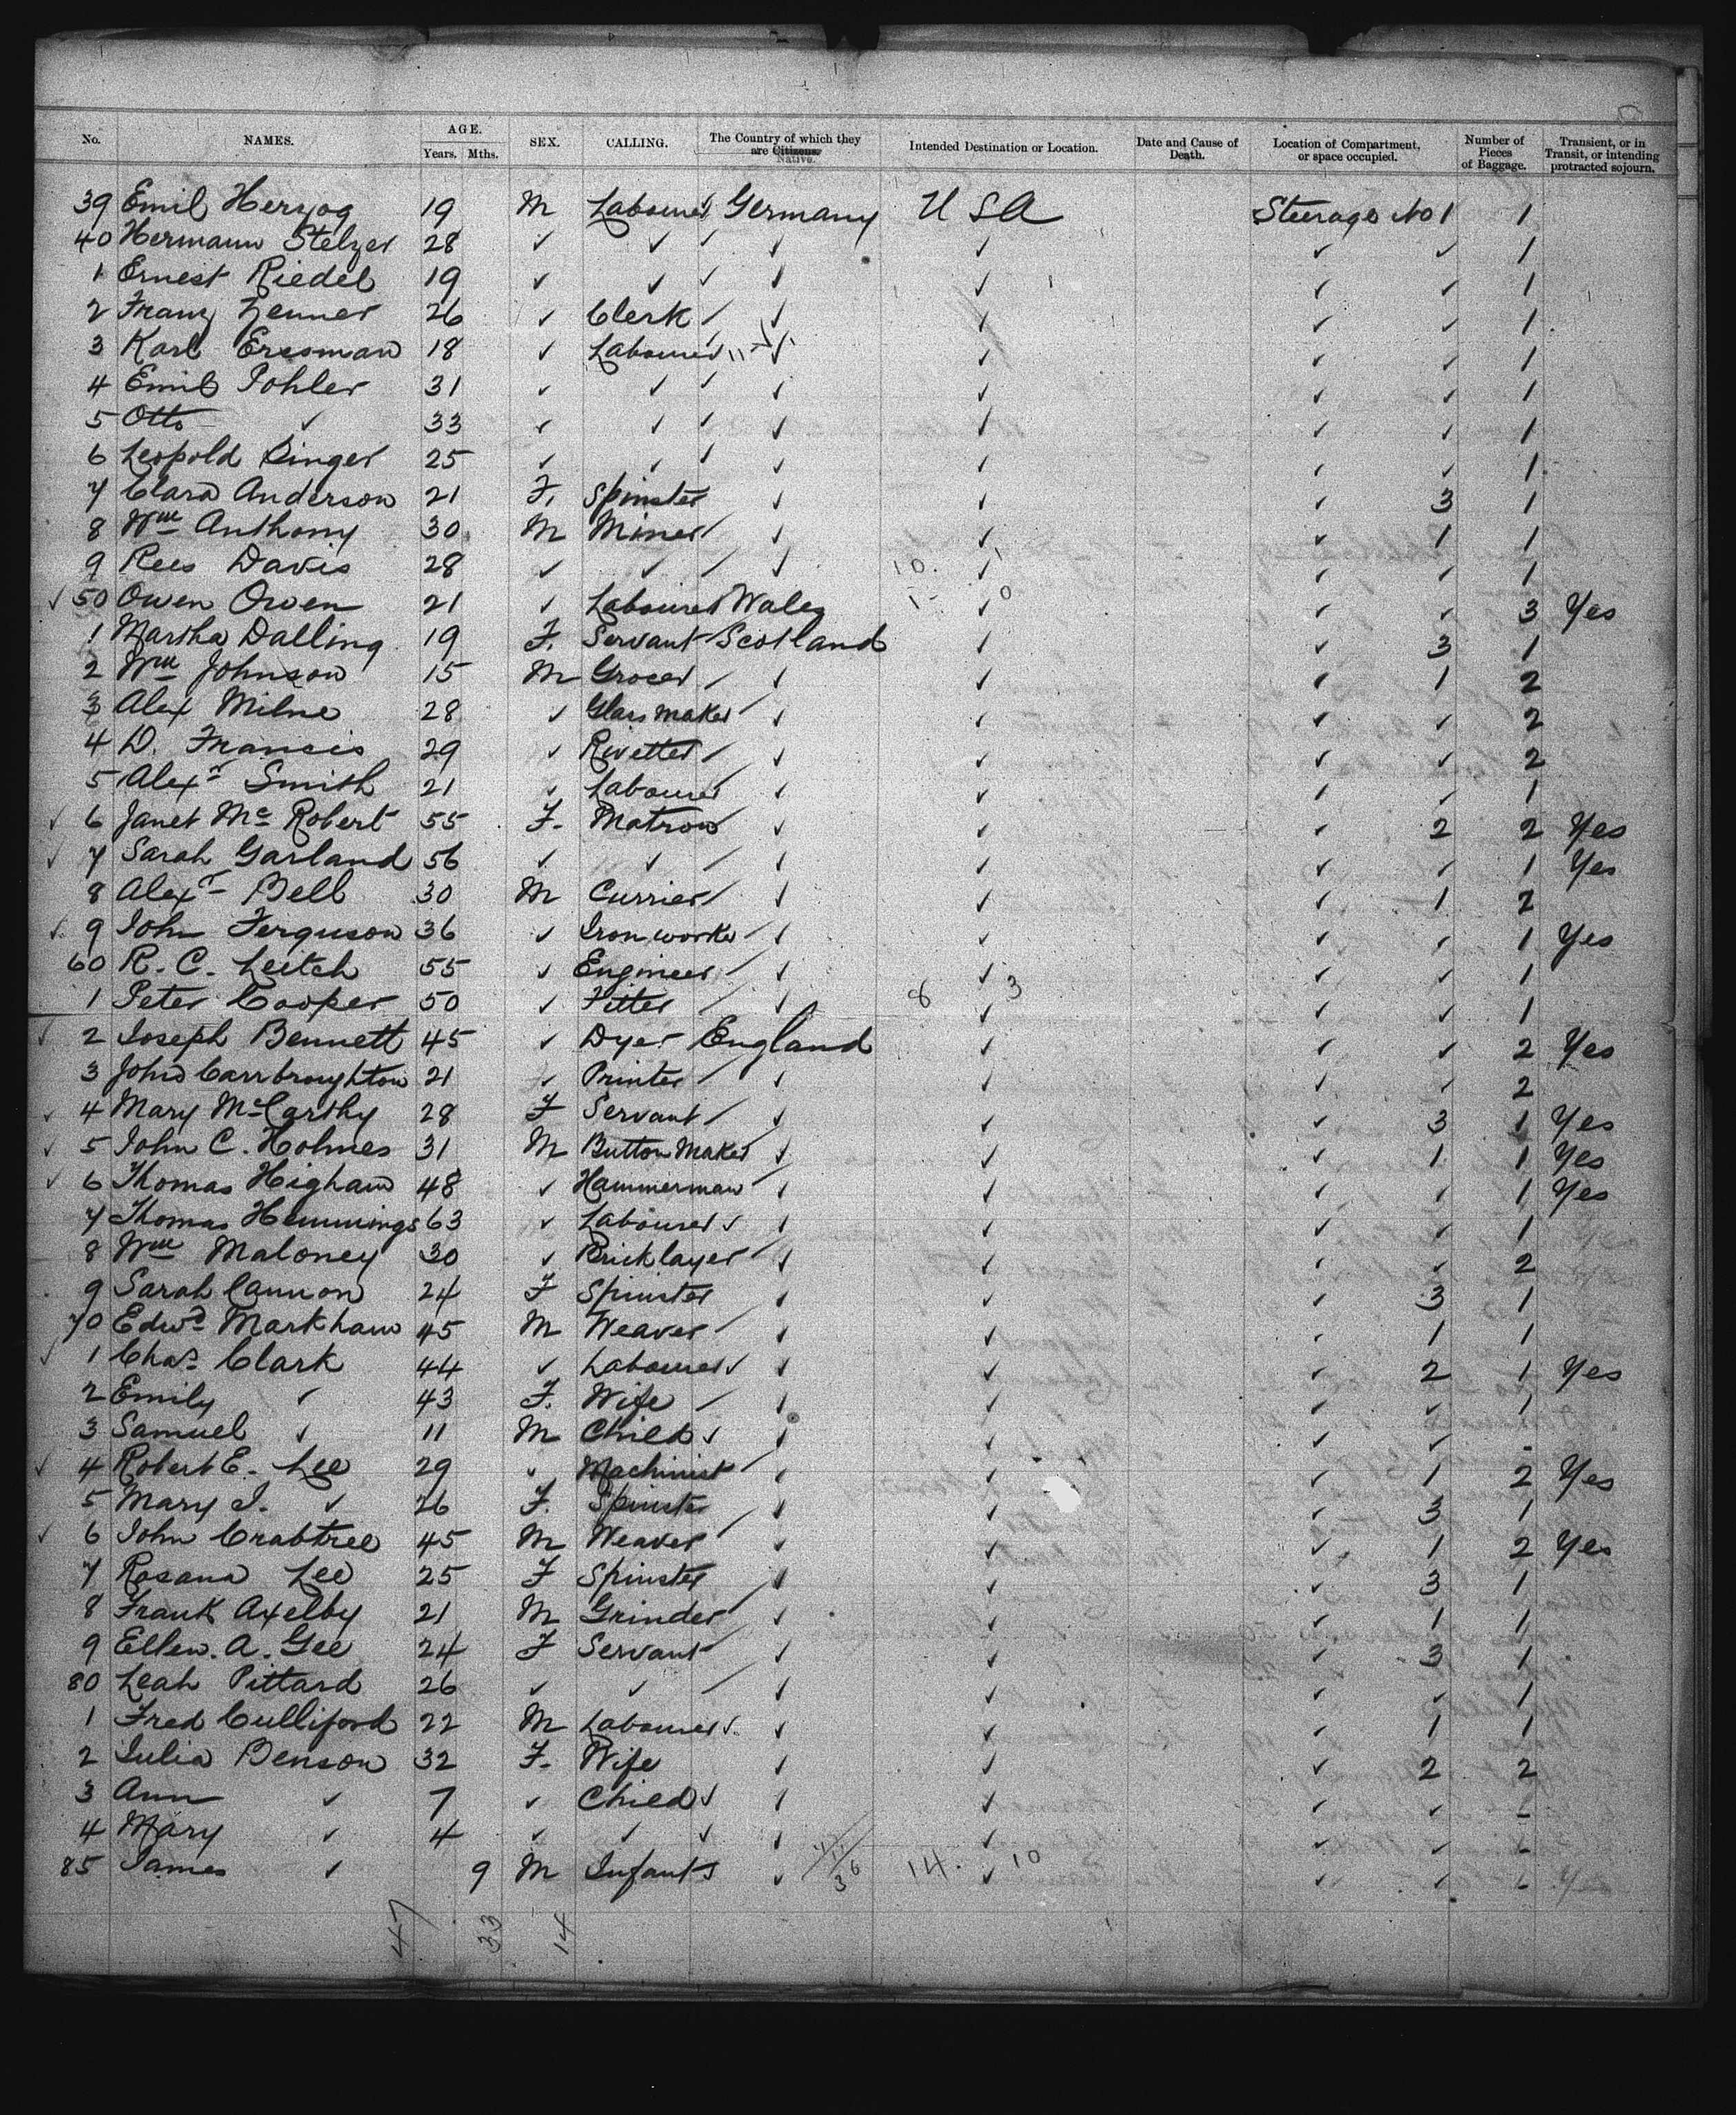 No. NAMES. AGE. Years. Mths. SEX. CALLING. The Country of which they are Citizens. Native. Intended Destination or Location. Date and Cause of Death. Location of Compartment, or space occupied. Number of Pieces of Baggage. Transient, or in Transit, or intending protracted sojourn.
39 Emil Herzog 19 M Labourer Germany USA Steerage No 1 1
40 Hermann Stelzer 28 ✓ ✓ ✓ ✓ ✓ ✓ ✓ 1
1 Ernest Riedel 19 ✓ ✓ ✓ ✓ ✓ ✓ ✓ 1
2 Franz Zenner 26 ✓ Clerk / ✓ ✓ ✓ ✓ 1
3 Karl Eresman 18 ✓ Labourer ✓ ✓ ✓ ✓ 1
4 Emil Pohler 31 ✓ ✓ ✓ ✓ ✓ ✓ ✓ 1
5 Otto ✓ 33 ✓ ✓ ✓ ✓ ✓ ✓ ✓ 1
6 Leopold Binger 25 ✓ ✓ ✓ ✓ ✓ ✓ ✓ 1
7 Clara Anderson 21 F. Spinster ✓ ✓ ✓ 3 1
8 Wm Anthony 30 M Miner / ✓ ✓ ✓ 1 1
9 Rees Davis 28 ✓ ✓ / ✓ 10. ✓ ✓ ✓ 1
✓ 50 Owen Owen 21 ✓ Labourer Wales 1 - ✓ 0 ✓ ✓ 3 Yes
1 Martha Dalling 19 F. Servant Scotland ✓ ✓ 3 1
2 Wm Johnson 15 M Grocer / ✓ ✓ ✓ 1 2
3 Alex Milne 28 ✓ Glass Maker ✓ ✓ ✓ ✓ 2
4 D. Francis 29 ✓ Rivetter / ✓ ✓ ✓ ✓ 2
5 Alexr Smith 21 ✓ Labourer / ✓ ✓ ✓ ✓ 1
✓ 6 Janet Mc Robert 55 F. Matron ✓ ✓ ✓ 2 2 Yes
✓ 7 Sarah Garland 56 ✓ ✓ / ✓ ✓ ✓ ✓ 1 Yes
8 Alexr Bell 30 M Currier / ✓ ✓ ✓ 1 2
✓ 9 John Ferguson 36 ✓ Iron worker / ✓ ✓ ✓ ✓ 1 Yes
60 R. C. Leitch 55 ✓ Engineer / ✓ ✓ ✓ ✓ 1
1 Peter Cooper 50 ✓ Fitter / ✓ 8 ✓ 3 ✓ ✓ 1
✓ 2 Joseph Bennett 45 ✓ Dyer England ✓ ✓ ✓ 2 Yes
3 John Carrbroughton 21 ✓ Printer / ✓ ✓ ✓ ✓ 2
✓ 4 Mary McCarthy 28 F Servant / ✓ ✓ ✓ 3 1 Yes
✓ 5 John C. Holmes 31 M Button Maker ✓ ✓ ✓ 1 1 Yes
✓ 6 Thomas Higham 48 ✓ Hammerman ✓ ✓ ✓ ✓ 1 Yes
7 Thomas Hemmings 63 ✓ Labourer ✓ ✓ ✓ ✓ ✓ 1
8 Wm Maloney 30 ✓ Bricklayer / ✓ ✓ ✓ ✓ 2
9 Sarah Cannon 24 F Spinster ✓ ✓ ✓ 3 1
70 Edwd Markham 45 M Weaver / ✓ ✓ ✓ 1 1
✓ 1 Chas. Clark 44 ✓ Labourer ✓ ✓ ✓ ✓ 2 1 Yes
2 Emily ✓ 43 F. Wife / ✓ ✓ ✓ ✓ 1
3 Samuel ✓ 11 M Child ✓ ✓ ✓ ✓ ✓ -
✓ 4 Robert E. Lee 29 ✓ Machinist / ✓ ✓ ✓ 1 2 Yes
5 Mary J. ✓ 26 F. Spinster ✓ ✓ ✓ 3 1
✓ 6 John Crabtree 45 M Weaver / ✓ ✓ ✓ 1 2 Yes
7 Rosana Lee 25 F Spinster ✓ ✓ ✓ 3 1
8 Frank Axelby 21 M Grinder / ✓ ✓ ✓ 1 1
9 Ellen. A. Gee 24 F Servant / ✓ ✓ ✓ 3 1
80 Leah Pittard 26 ✓ ✓ / ✓ ✓ ✓ ✓ 1
1 Fred Culliford 22 M Labourer ✓ ✓ ✓ ✓ 1 1
2 Julia Benson 32 F. Wife ✓ ✓ ✓ 2 2
3 Ann ✓ 7 ✓ Child ✓ ✓ ✓ ✓ ✓ -
4 Mary ✓ 4 ✓ ✓ ✓ ✓ ✓ ✓ ✓ -
85 James ✓ 9 M Infant ✓ ✓ 14. ✓ 10 ✓ ✓ -
47 33 14